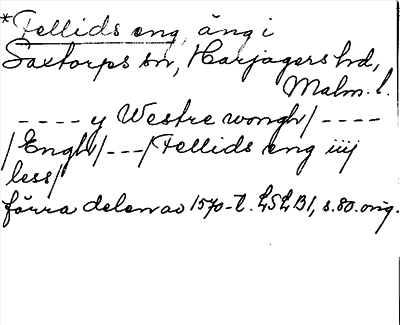 *Fellids eng, äng i
Saxtorps sn, Harjagers hd,
Malm. l.
---- y Westre wongh/----
/Engh/---/Fellids eng iiij
less/
förra delen av 1570-t. LSLB1, s.80. orig.